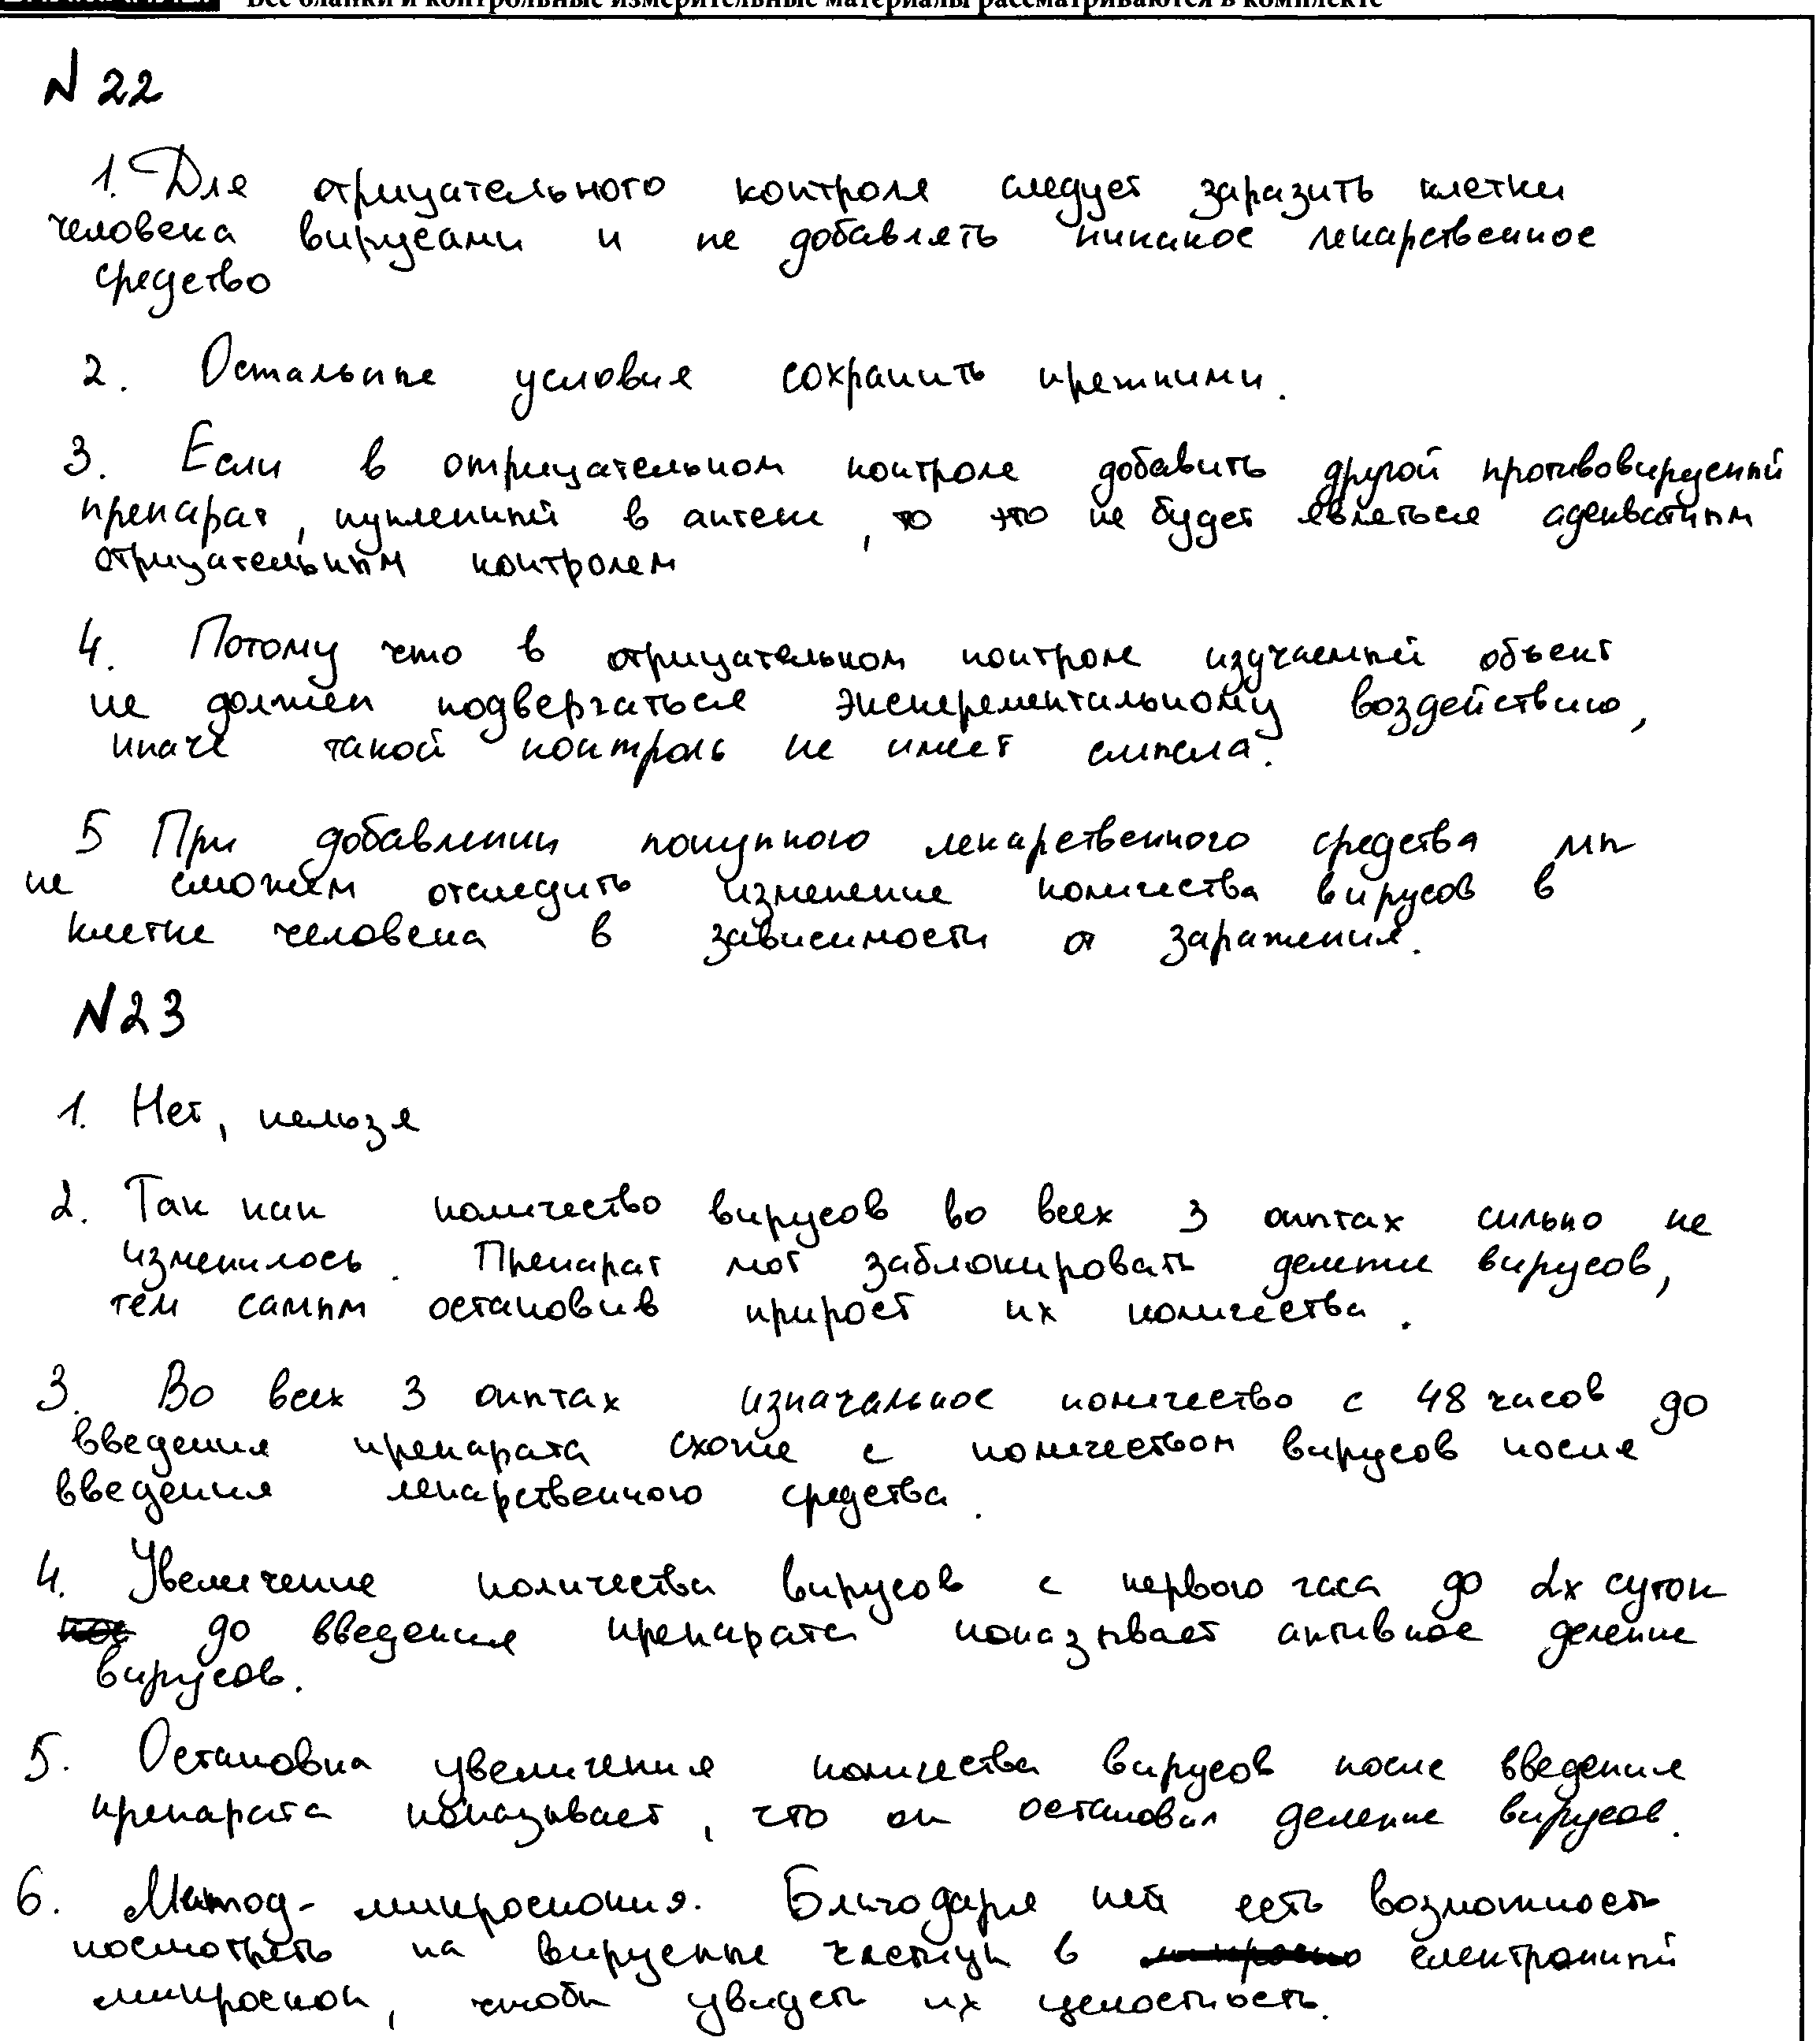 Все бланки и контрольные измерительные материалы рассматриваются в комплекте
N 22
1. Для отрицательного контроля следует заразить клетки
человека вирусами и не добавлять никакое лекарственное
средство
2. Остальные условия сохранить прежними.
3. Если в отрицательном контроле добавить другой противовирусный
препарат, купленный в аптеке, то это не будет являеться адекватным
отрицательным контролем
4. Потому что в отрицательном контроле изучаемый объект
не должен подвергаться эксперементальному воздействию,
иначе такой контроль не имеет смысла.
5 При добавлении покупного лекарственного средства мы
не сможем отследить изменение количества вирусов в
клетке человека в зависимости от заражения.
N23
1. Нет, нельзя
2. Так как количество вирусов во всех 3 опытах сильно не
изменилось. Препарат мог заблокировать деление вирусов,
тем самым остановив прирост их количества.
3. Во всех 3 опытах изначальное количество с 48 часов до
введения препарата схоже с количеством вирусов после
введения лекарственного средства.
4. Увеличение количества вирусов с первого часа до 2х суток
до введения препарата показывает активное деление
вирусов.
5. Остановка увеличения количества вирусов после введения
препарата показывает, что он остановил деление вирусов.
6. Метод - микроскопия. Благодаря ней есть возможность
посмотреть на вирусные частицы в електронный
микроскоп, чтобы увидеть их целостность.